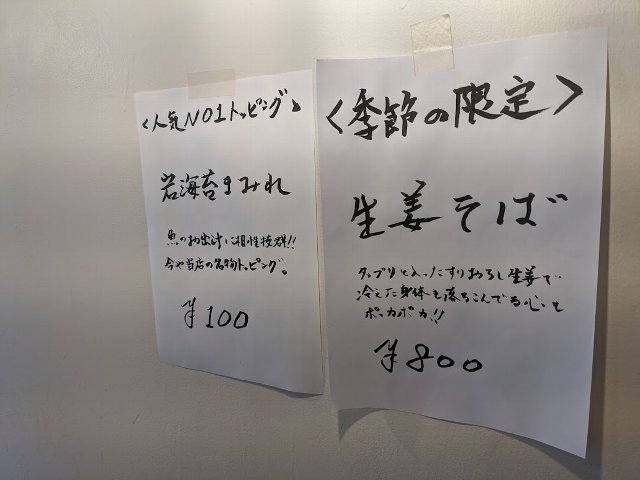 <人気NO1トッピング>
岩海苔まみれ
魚のお出汁に相性抜群!!
今や当店の名物トッピング。
¥100
<季節の限定>
生姜そば
タップリと入ったすりおろし生姜で
冷えた身体も落ちこんでる心も
ポッカポカ!!
¥800